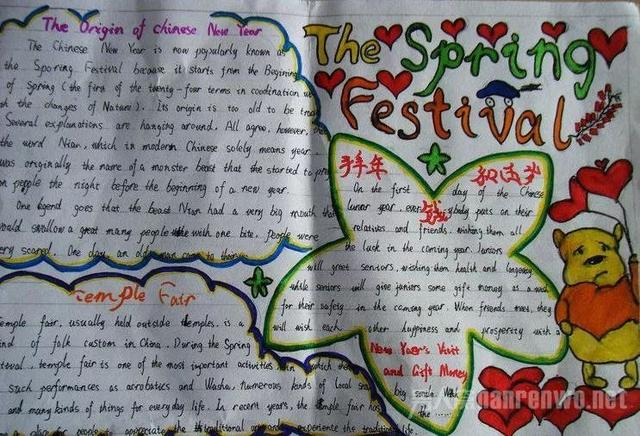 The Origin of Chinese New Year
The Chinese New Year is now popularly known as
the Sporing Festival because it starts from the Begining
of Spring (the first of the twenty-four terms in coodination
the changes of Nature). Its origin is too old to be
Several explanations are hanging around. All agree, however,
the word Nian, which in modern Chinese solely means year
was originally the name of a monster beast that the started to
on people the night before the beginning of a new year.
One legend goes that the beast Nian had a very big mouth
would swallow a great many people with one bite. People were
very scared. One day, an old man came to
Temple Fair
Temple fair, usually held outside temples, is a
kind of folk custom in China. During the Spring
temple fair is one of the most important activities in which
such performances as acrobatics and Washu, numerous kinds of local
and many kinds of things for everyday life. In recent years, the temple fair has
for people appreciate the traditional experience the traditional
The Spring
Festival
拜年
On the first day of the Chinese
lunar year, everybody puts on their
relatives and friends, wishing them all
the luck in the coming year. Juniors
will greet seniors, wishing them health and longevity
while seniors will give juniors some gift money as a
for their safety in the coming year. When friends they
will wish each other happiness and prosperity with a
big smile.
New Year's Visit
and Gift Money
nanrenwo.net